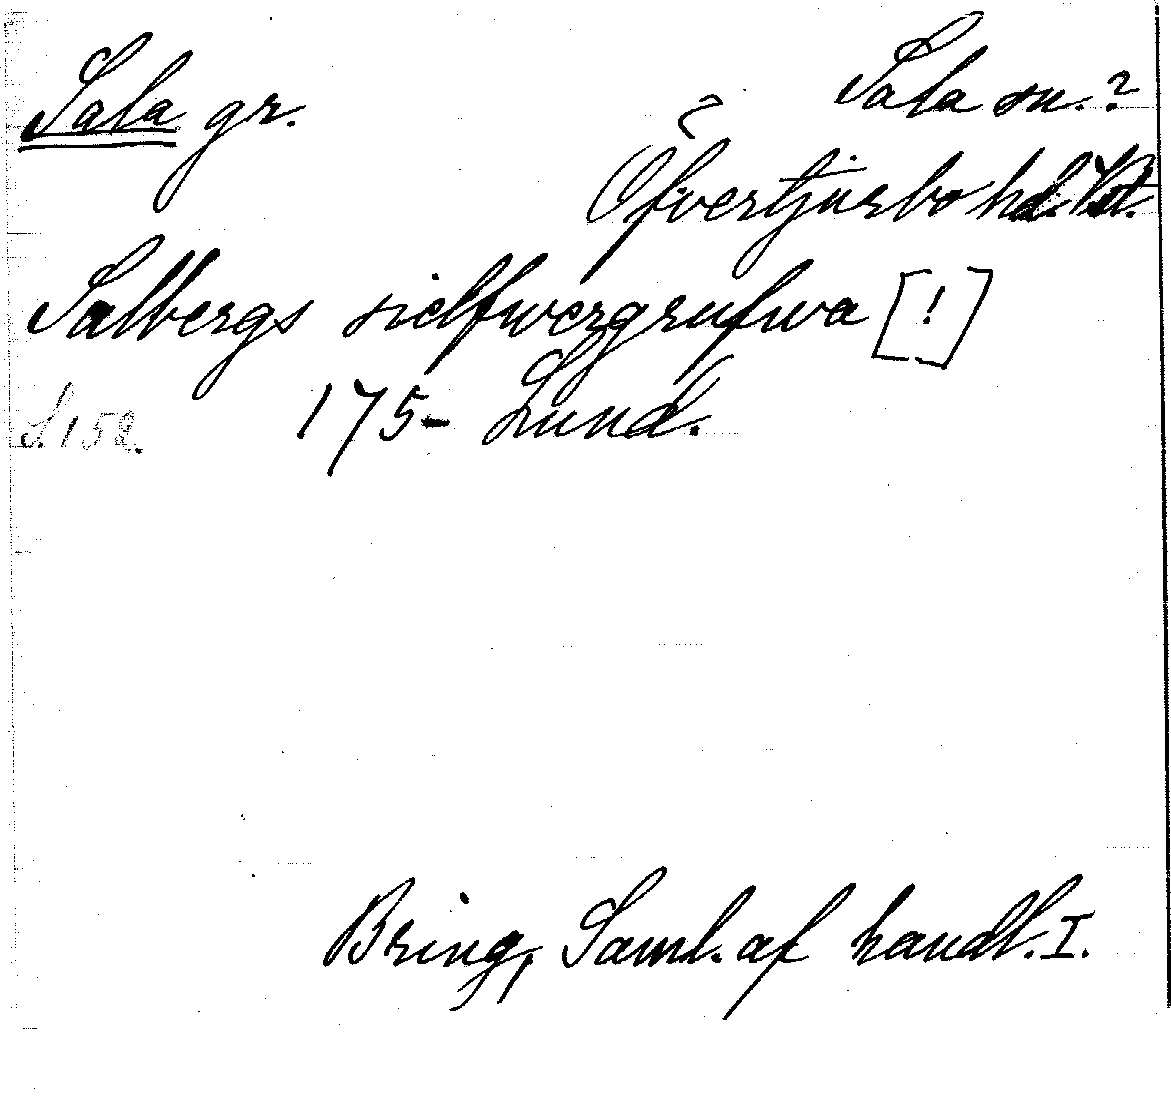 Sala gr.
Sala sn.?
Öfvertjurbo hd. Vstm.
Salbergs sielfwergrufwa [!]
S. 152. 175- Lund.
Bring, Saml. af handl. I.